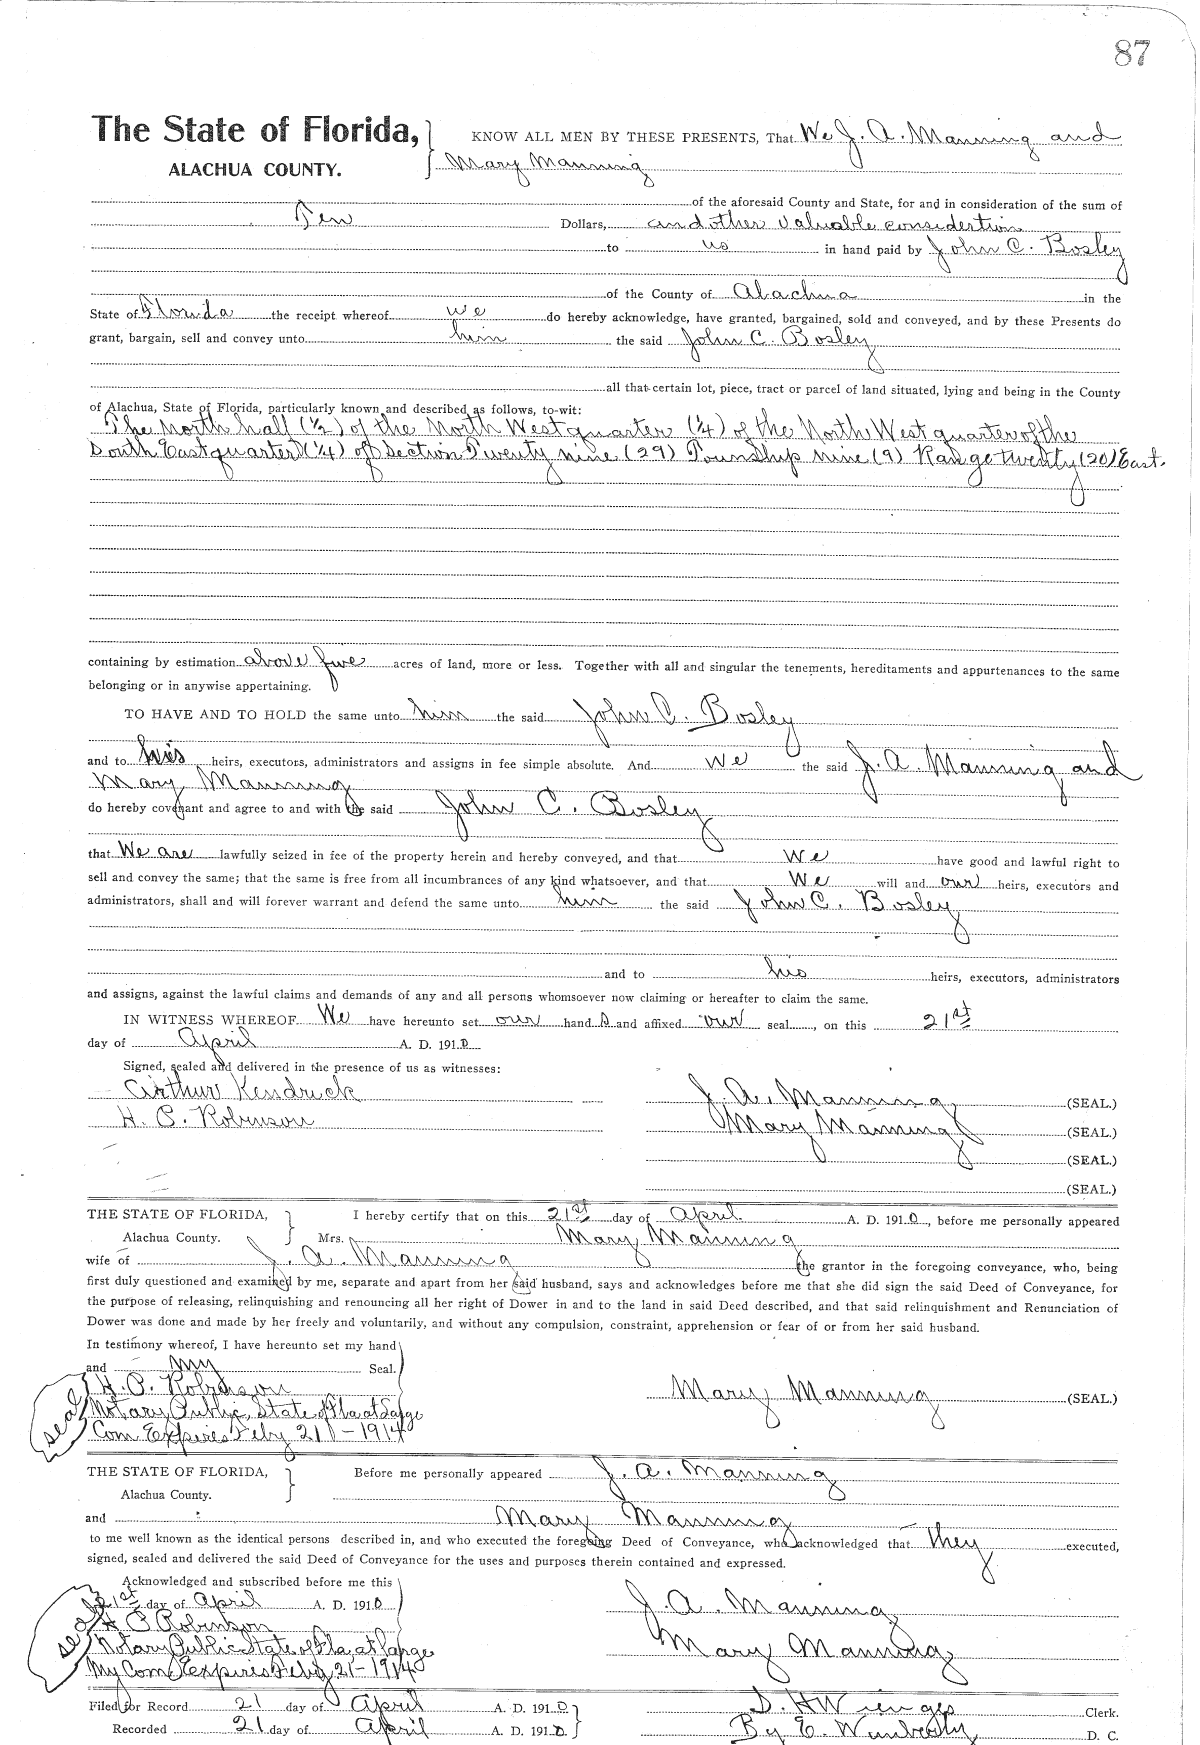 87
The State of Florida, KNOW ALL MEN BY THESE PRESENTS, That We J. A. Manning and
ALACHUA COUNTY. Mary Manning
of the aforesaid County and State, for and in consideration of the sum of
Ten Dollars, and other valuable considertion
to us in hand paid by John C. Bosley
of the County of Alachua in the
State of Florida the receipt whereof we do hereby acknowledge, have granted, bargained, sold and conveyed, and by these Presents do
grant, bargain, sell and convey unto him the said John C. Bosley
all that certain lot, piece, tract or parcel of land situated, lying and being in the County
of Alachua, State of Florida, particularly known and described as follows, to-wit:
The North half (1/2) of the North West quarter (1/4) of the North West quarter of the
South East quarter (1/4) of Section Twenty nine (29) Township nine (9) Range twenty (20) East.
containing by estimation above five acres of land, more or less. Together with all and singular the tenements, hereditaments and appurtenances to the same
belonging or in anywise appertaining.
TO HAVE AND TO HOLD the same unto him the said John C. Bosley
and to his heirs, executors, administrators and assigns in fee simple absolute. And we the said J. A. Manning and
Mary Manning
do hereby covenant and agree to and with the said John C. Bosley
that We are lawfully seized in fee of the property herein and hereby conveyed, and that we have good and lawful right to
sell and convey the same; that the same is free from all incumbrances of any kind whatsoever, and that We will and our heirs, executors and
administrators, shall and will forever warrant and defend the same unto him the said John C. Bosley
and to his heirs, executors, administrators
and assigns, against the lawful claims and demands of any and all persons whomsoever now claiming or hereafter to claim the same.
IN WITNESS WHEREOF We have hereunto set our hand s and affixed our seal, on this 21st
day of April A. D. 1910
Signed, sealed and delivered in the presence of us as witnesses:
Arthur Kendrick J. A. Manning (SEAL.)
H. P. Robinson Mary Manning (SEAL.)
(SEAL.)
(SEAL.)
THE STATE OF FLORIDA, I hereby certify that on this 21st day of April A. D. 1910, before me personally appeared
Alachua County. Mrs. Mary Manning
wife of J. A. Manning the grantor in the foregoing conveyance, who, being
first duly questioned and examined by me, separate and apart from her said husband, says and acknowledges before me that she did sign the said Deed of Conveyance, for
the purpose of releasing, relinquishing and renouncing all her right of Dower in and to the land in said Deed described, and that said relinquishment and Renunciation of
Dower was done and made by her freely and voluntarily, and without any compulsion, constraint, apprehension or fear of or from her said husband.
In testimony whereof, I have hereunto set my hand
and my Seal.
seal H. P. Robinson Mary Manning (SEAL)
Notary Public, State of Fla at Large
Com Expires Feby 21 - 1914
THE STATE OF FLORIDA, Before me personally appeared J. A. Manning
Alachua County.
and Mary Manning
to me well known as the identical persons described in, and who executed the foregoing Deed of Conveyance, who acknowledged that they executed,
signed, sealed and delivered the said Deed of Conveyance for the uses and purposes therein contained and expressed.
Acknowledged and subscribed before me this
21st day of April A. D. 1910 J. A. Manning
seal H P Robinson
Notary Public State of Fla, at Large Mary Manning
My Com Expires Feby 21 - 1914
Filed for Record 21 day of April A. D. 1910 S. H Wienges Clerk.
Recorded 21 day of April A. D. 1910 By E. Wimberly D. C.